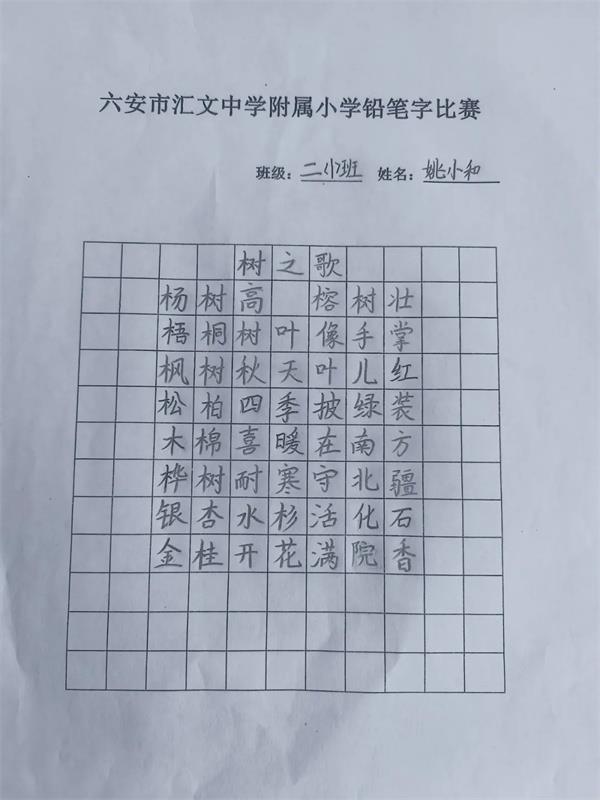 六安市汇文中学附属小学铅笔字比赛
班级：二（1）班 姓名：姚小和
树之歌
杨树高 榕树壮
梧桐树叶像手掌
枫树秋天叶儿红
松柏四季披绿装
木棉喜暖在南方
桦树耐寒守北疆
银杏水杉活化石
金桂开花满院香